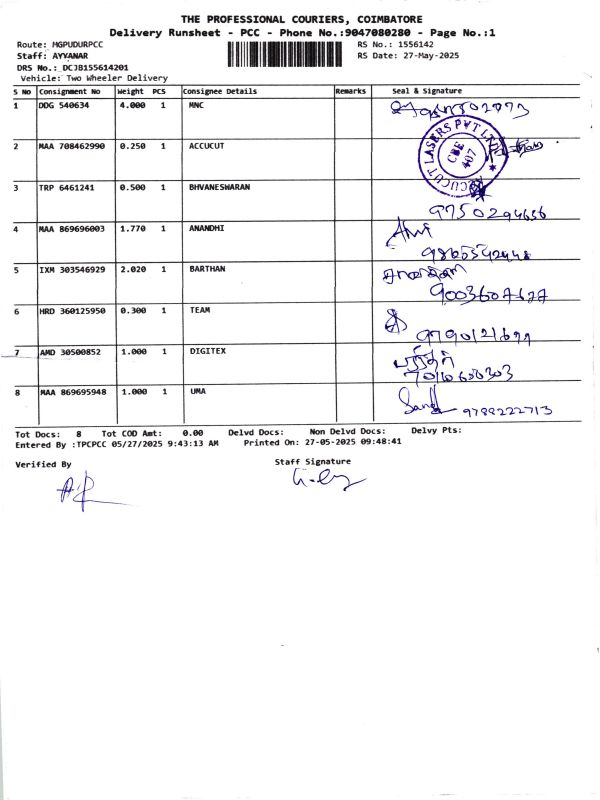 THE PROFESSIONAL COURIERS, COIMBATORE
Delivery Runsheet - PCC - Phone No.:9047080280 - Page No.:1
Route: MGPUDURPCC RS No.: 1556142
Staff: AYYANAR RS Date: 27-May-2025
DRS No.: DCJB155614201
Vehicle: Two Wheeler Delivery
S No Consignment No Weight PCS Consignee Details Remarks Seal & Signature
1 DDG 540634 4.000 1 MNC
2 MAA 708462990 0.250 1 ACCUCUT
ACCUCUT LASERS PVT LTD
CBE
407
3 TRP 6461241 0.500 1 BHVANESWARAN
9750294656
4 MAA 869696003 1.770 1 ANANDHI
5 IXM 303546929 2.020 1 BARTHAN
6 HRD 360125950 0.300 1 TEAM
7 AMD 30500852 1.000 1 DIGITEX
8 MAA 869695948 1.000 1 UMA
9788222713
Tot Docs: 8 Tot COD Amt: 0.00 Delvd Docs: Non Delvd Docs: Delvy Pts:
Entered By :TPCPCC 05/27/2025 9:43:13 AM Printed On: 27-05-2025 09:48:41
Verified By Staff Signature